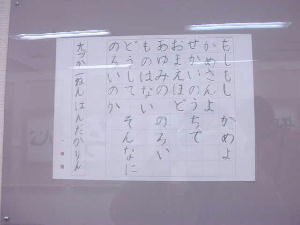 もしもし かめよ
かめさんよ
せかいのうちで
おまえほど
あゆみの のろい
ものはない
どうして そんなに
のろいのか